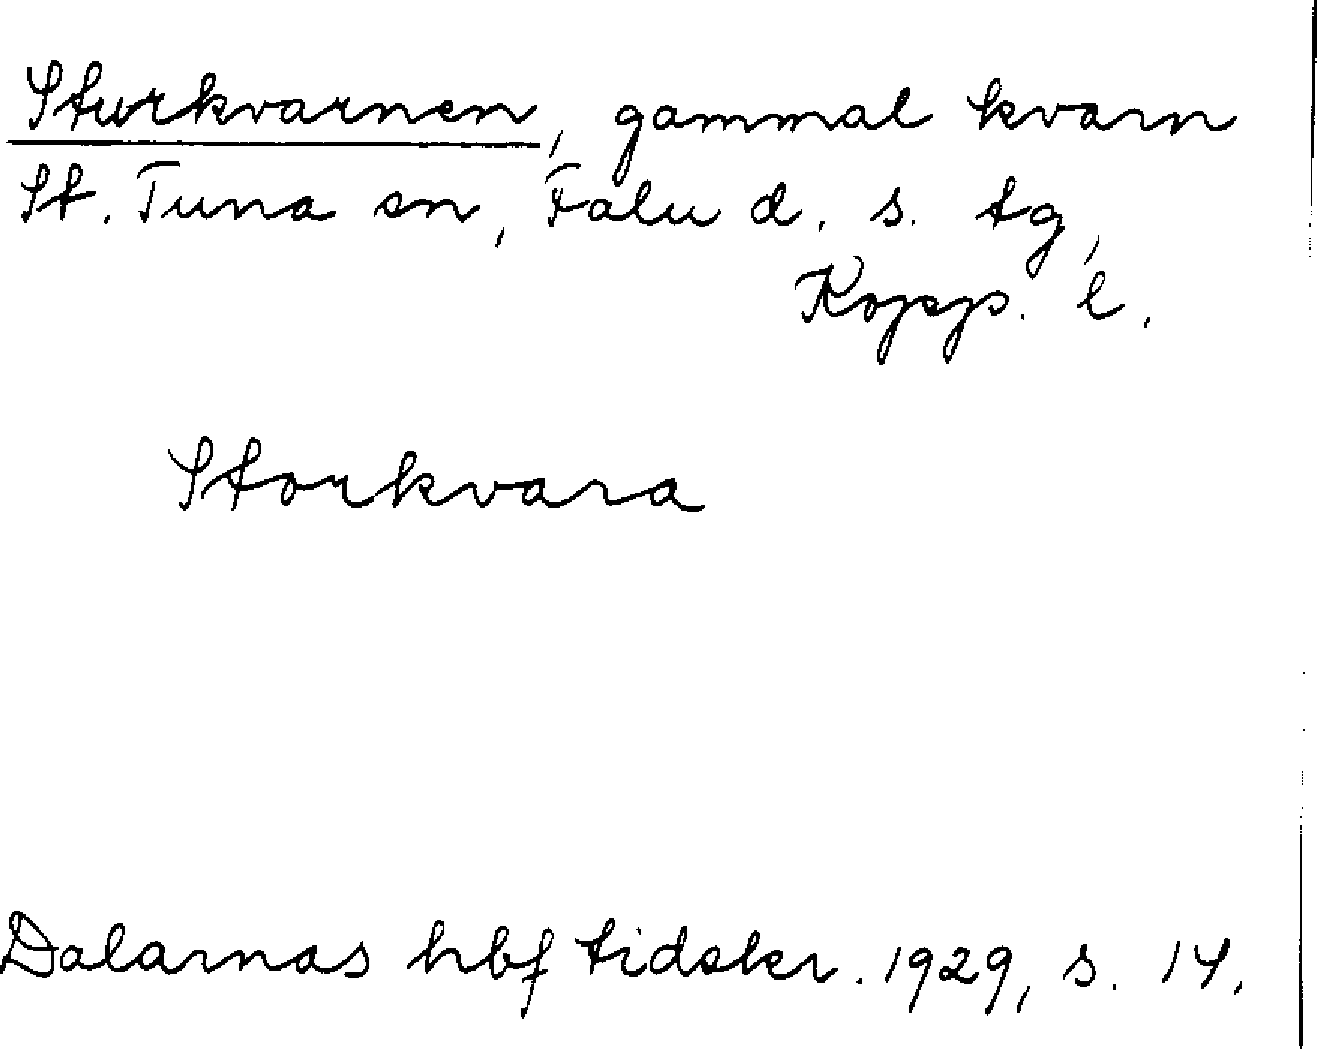 Storkvarnen, gammal kvarn
St. Tuna sn, Falu d. s. tg,
Kopp. l.
Storkvara
Dalarnas hbf tidskr. 1929, s. 14.